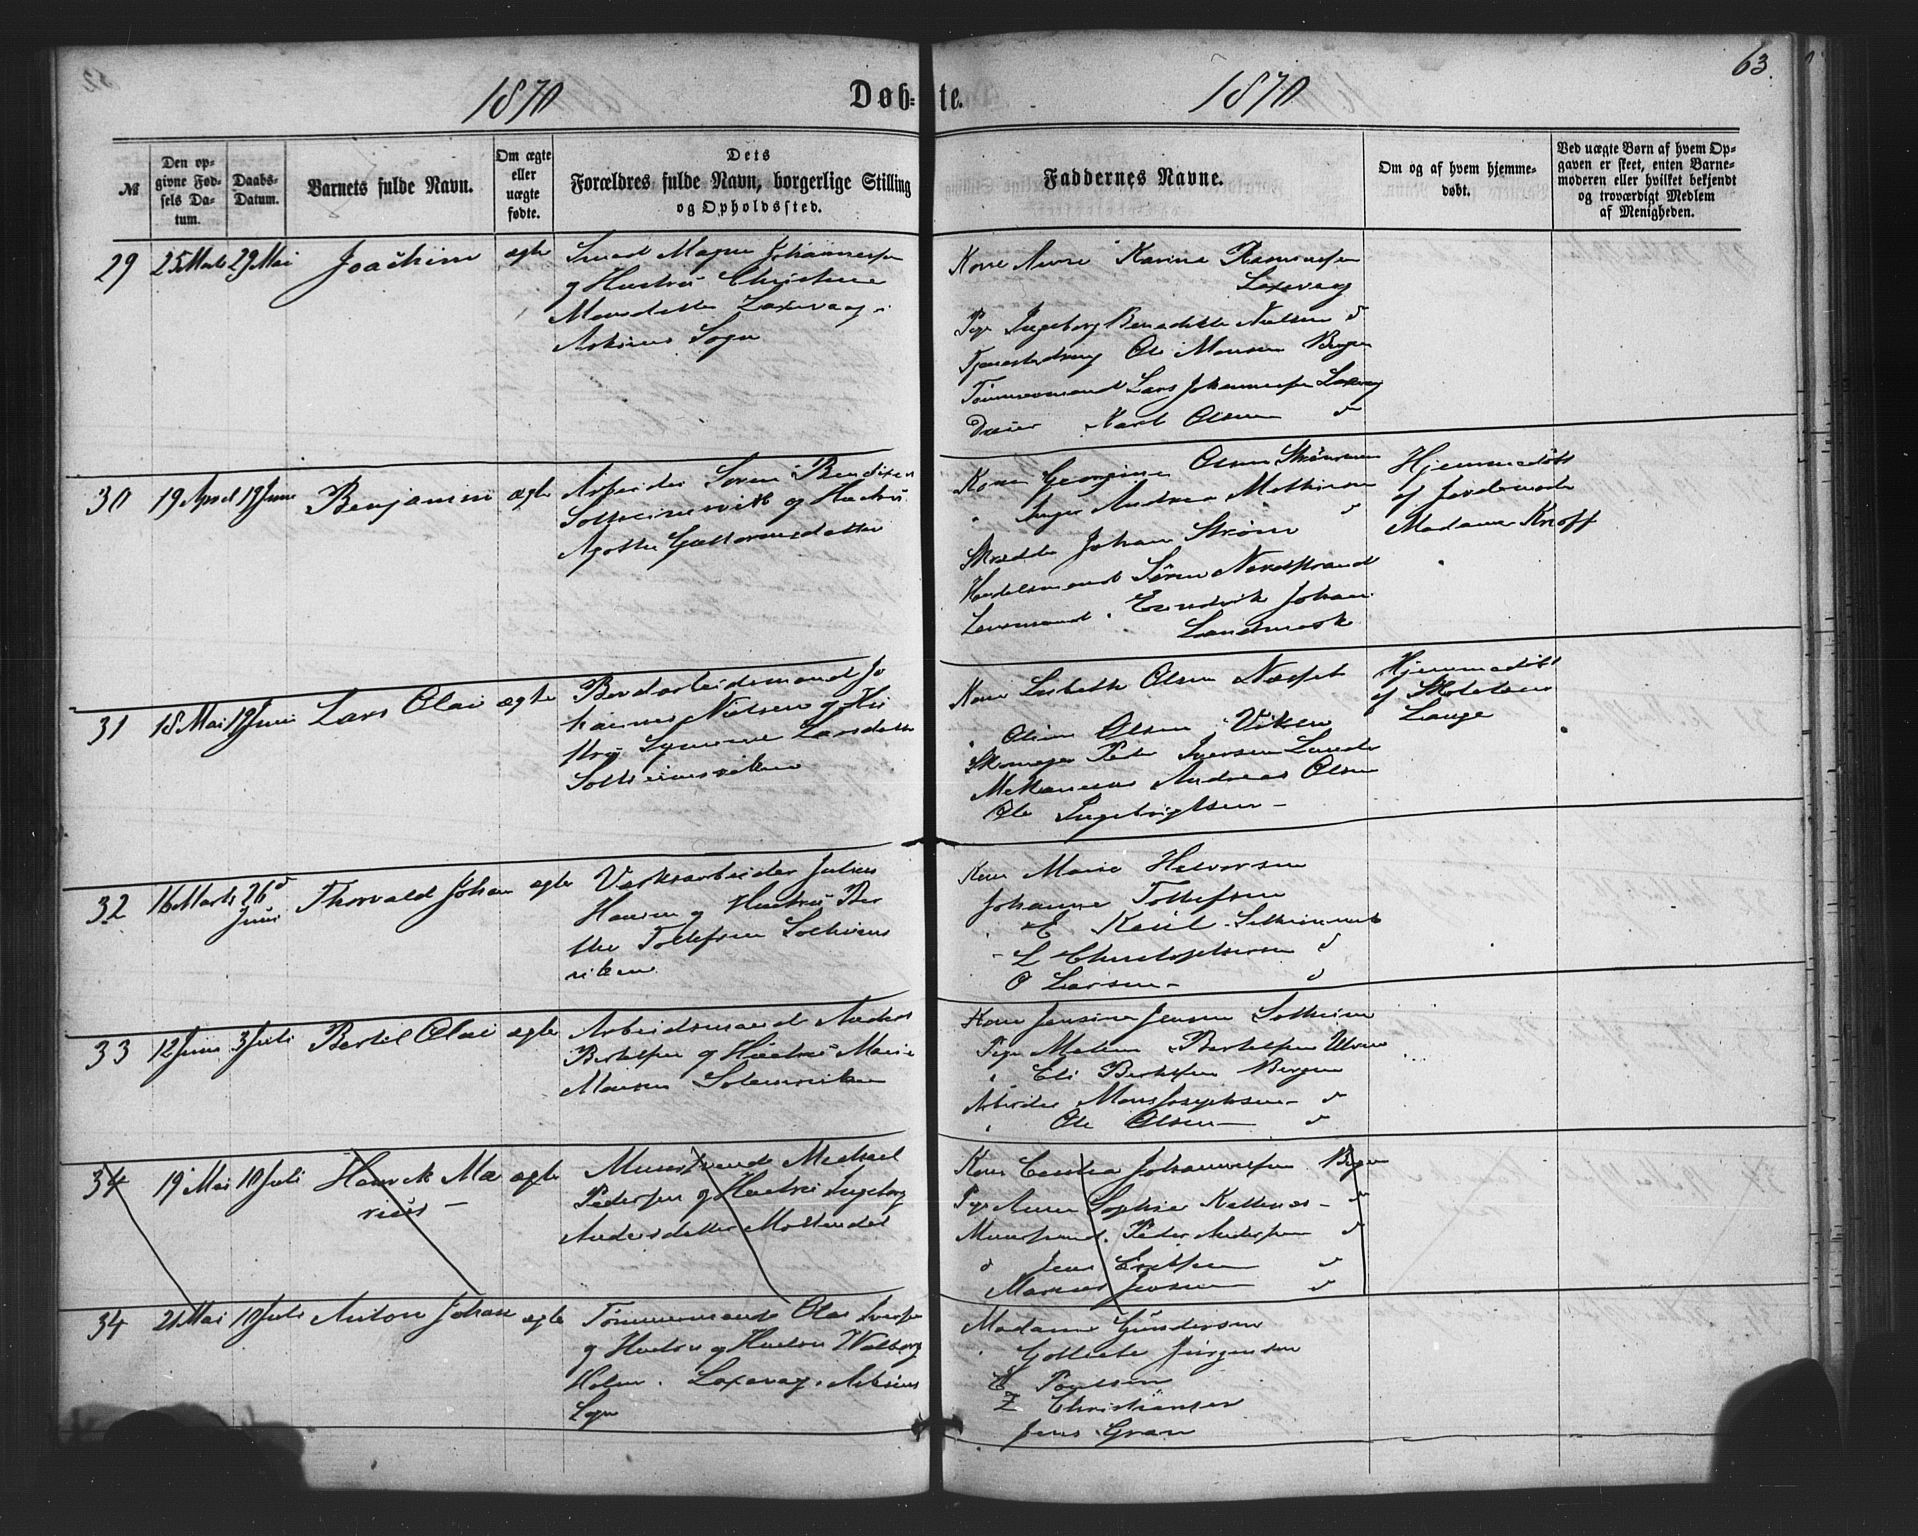 1870 Døb=te. 1870 63.
№
Den op-
givne Fød-
sels Da-
tum.
Daabs-
Datum.
Barnets fulde Navn.
Om ægte
eller
uægte
fødte.
Dets
Forældres fulde Navn, borgerlige Stilling
og Opholdssted.
Faddernes Navne.
Om og af hvem hjemme-
døbt.
Ved uægte Børn af hvem Op-
gaven er skeet, enten Barne-
moderen eller hvilket bekjendt
og troværdigt Medlem
af Menigheden.
29 25 Marts 29 Mai Joachim ægte Smed Magne Johannessen
og Hustru Christine
Monsdatter Laxevaag
Askøens Sogn
Kone Anne Karine Rasmussen
Laxevaag
Pige Ingeborg Benedikte Nielsen d
Tjenestedreng Ole Monsen Bergen
Tømmermand Lars Johannessen Laxevaag
Karl Olsen d
30 19 April 19 Juni Benjamin ægte Arbeider Søren Bendixen
Solheimsvik og Hustru
Agathe Guttormsdatter
Kone Georgine Olsen Strømmen
" Inger Andrea Mathiesen d
Skrædder Johan Strøm
Handelsmand Søren Nordstrand
Johan
Landmark
Hjemmedøbt
af Jordemoder
Madame Knoff
31 18 Mai 19 Juni Lars Olai ægte Bordarbeidsmand Jo
hannes Nielsen og Hu
stru Larsdatter
Solheimsviken
Kone Lisbeth Olsen Næsset
" Oline Olsen Viken
Skomager Peder Iversen Lunde
Mekanicus Andreas Olsen
Ole Ingebrigtsen -
Hjemmedøbt
af Skolelærer
Lange
32 16 Marts 26 d
Juni Thorvald Johan ægte Værksarbeider Julius
Hansen og Hustru Ber
the Tollefsen Solheims
viken
Kone Marie Halvorsen
Johanne Tollefsen
" E Solheimsvik
- L Christophersen d
O Larsen - d
33 12 Juni 3 Juli Bertil Olai ægte Arbeidsmand Anders
Bertelsen og Hustru Marie
Monsen Solemsviken
Kone Jensine Jensen Solheim
Pige Malene Bertelsen Ulven
" Eli Bertelsen Bergen
Arbeider Mons Josephsen - d
" Ole Olsen - d
34 19 Mai 10 Juli Henrik Ma ægte Muursvend Michael
rius - Pedersen og Hustru Ingeborg
Andersdatter Møllendal
Kone Johannessen Bergen
Pige Anne Sophie - d
Muursvend Peder Andersen d
d Jens Eriksen d
Marius Jensen d
34 21 Mai 10 Juli Anton Johan ægte Tømmermand Olai Iversen
og Hustru og Hustru Walborg
Holm. Laxevaag. Askøens
Sogn
Madame Gundersen
" Jürgensen
E Poulsen
Z Christiansen
Jens Gran